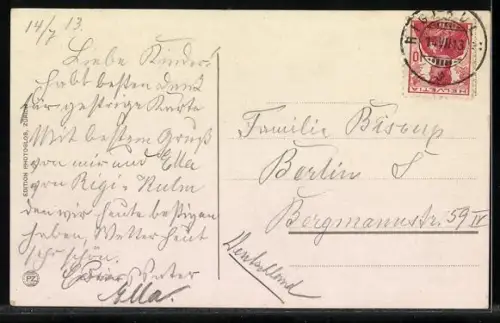 14/7 13.
Liebe Kinder!
habt besten Dank
für gestrige Karte
Mit bestem Gruß
von mir und Ella
von Rigi-Kulm
den wir heute bestigen
haben, Wetter heut
sehr schön.
Vater
Ella.
EDITION PHOTOGLOB, ZÜRICH
PZ
RIGI-KULM
14.VII.13
HELVETIA
10
Familie Biscup
Berlin S
Bergmannstr. 59 IV
Deutschland